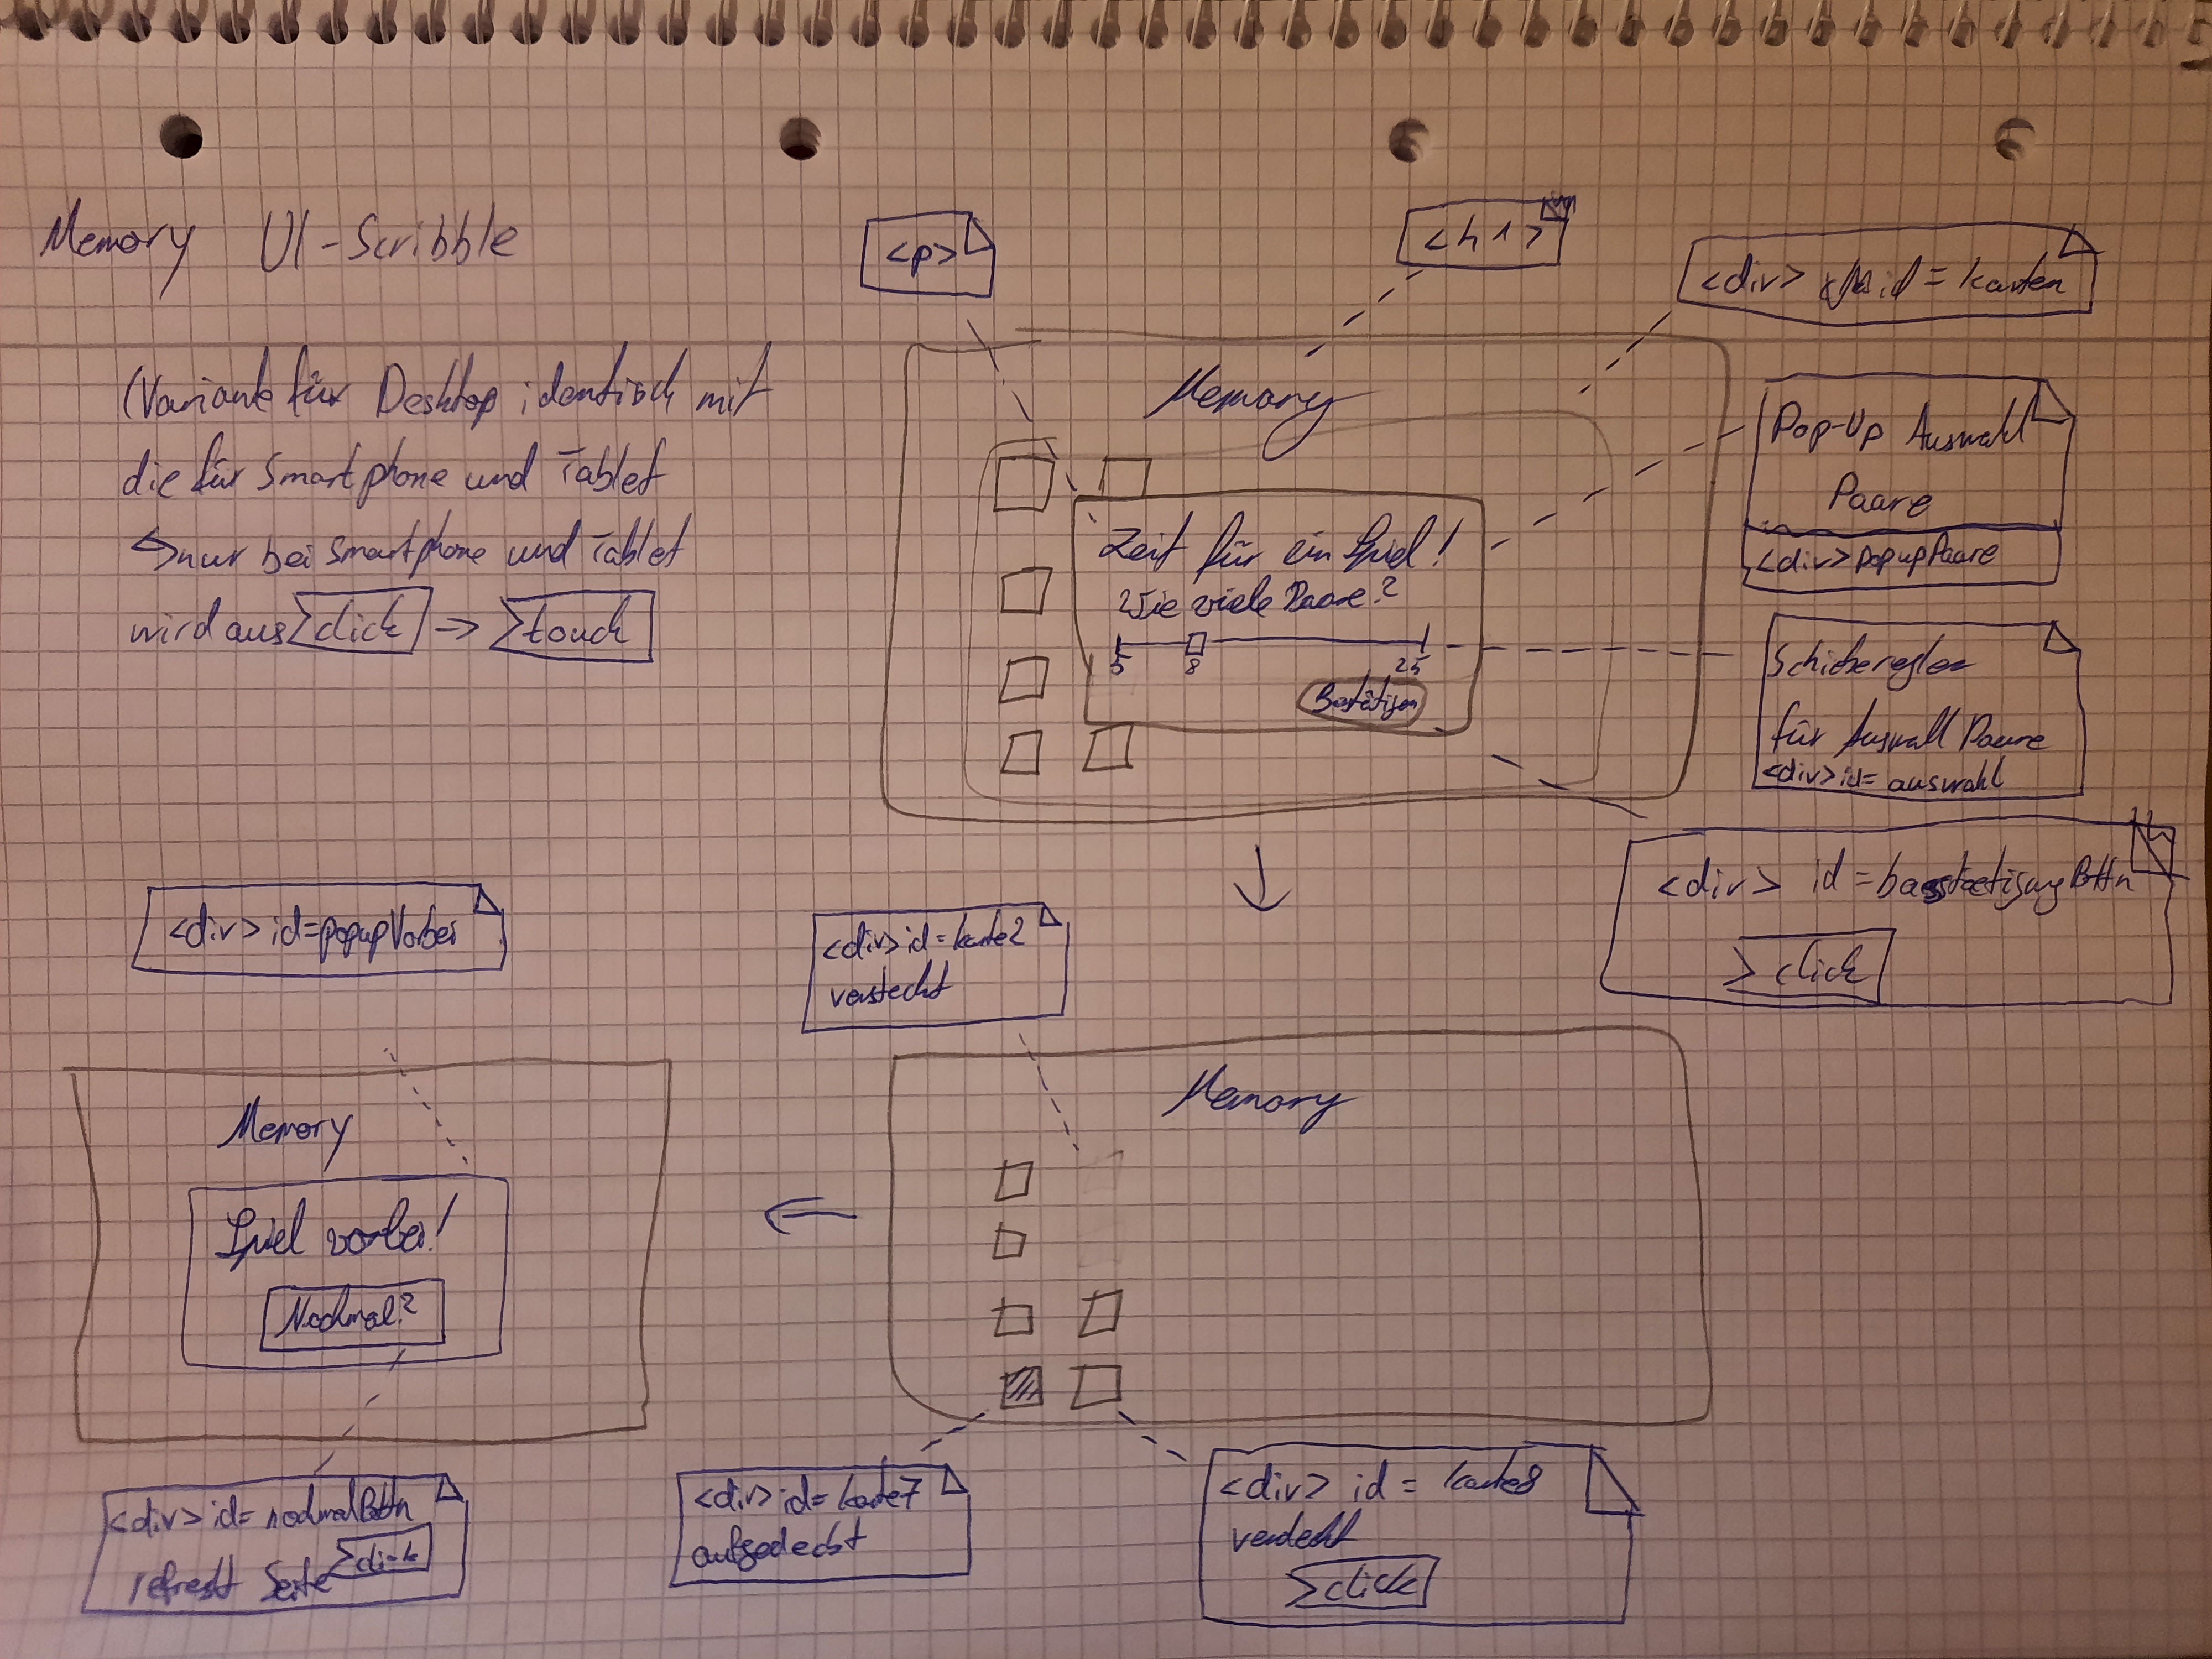 Memory UI-Scribble
(Variante für Desktop identisch mit
die für Smartphone und Tablet
->nur bei Smartphone und Tablet
wird aus click => touch
<p>
<h1>
<div> id = karten
Memory
Zeit für ein Spiel!
Wie viele Paare?
5
8
25
Bestätigen
Pop-Up Auswahl
Paare
<div>popupPaare
Schieberegler
für Auswahl Paare
<div> id = auswahl
<div> id = bestaetigungBttn
click
<div> id = karte2
versteckt
Memory
<div> id = karte7
aufgedeckt
<div> id = karte8
verdeckt
click
<div> id = popupVorbei
Memory
Spiel vorbei!
Nochmal?
<div> id = nochmalBttn
refresht Seite click